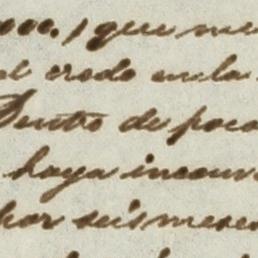 000., que me
crodo en la
Dentro de poco
haya incon
por seis meses